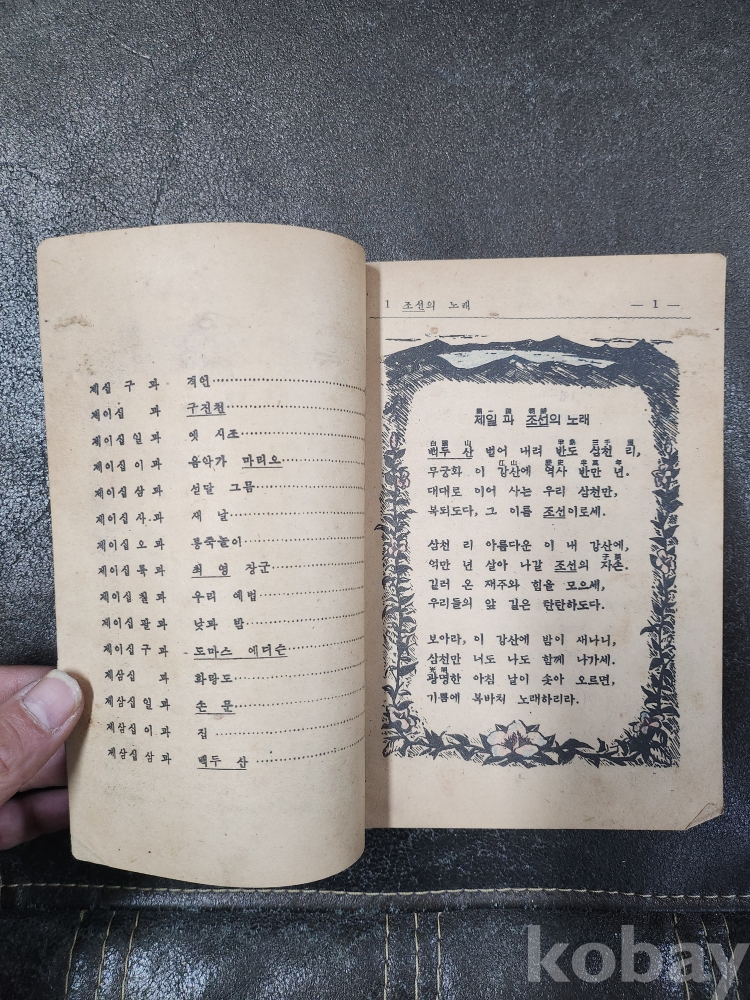 제십 구 과 격언
제이십 과 구진천
제이십 일 과 옛 시조
제이십 이 과 음악가 마리오
제이십 삼 과 섣달 그믐
제이십 사 과 재 날
제이십 오 과 통죽놀이
제이십 륙 과 최 영 장군
제이십 칠 과 우리 예법
제이십 팔 과 낮과 밤
제이십 구 과 도마스 에디슨
제삼십 과 화랑도
제삼십 일 과 손 문
제삼십 이 과 집
제삼십 삼 과 백두 산
1 조선의 노래 — 1 —
제일 과 조선의 노래
백두 산 벋어 내려 반도 삼천 리,
무궁화 이 강산에 역사 반만 년.
대대로 이어 사는 우리 삼천만,
복되도다, 그 이름 조선이로세.
삼천 리 아름다운 이 내 강산에,
억만 년 살아 나갈 조선의 자손.
길러 온 재주와 힘을 모으세,
우리들의 앞 길은 탄탄하도다.
보아라, 이 강산에 밤이 새나니,
삼천만 너도 나도 함께 나가세.
광명한 아침 날이 솟아 오르면,
기쁨에 북바쳐 노래하리라.
kobay